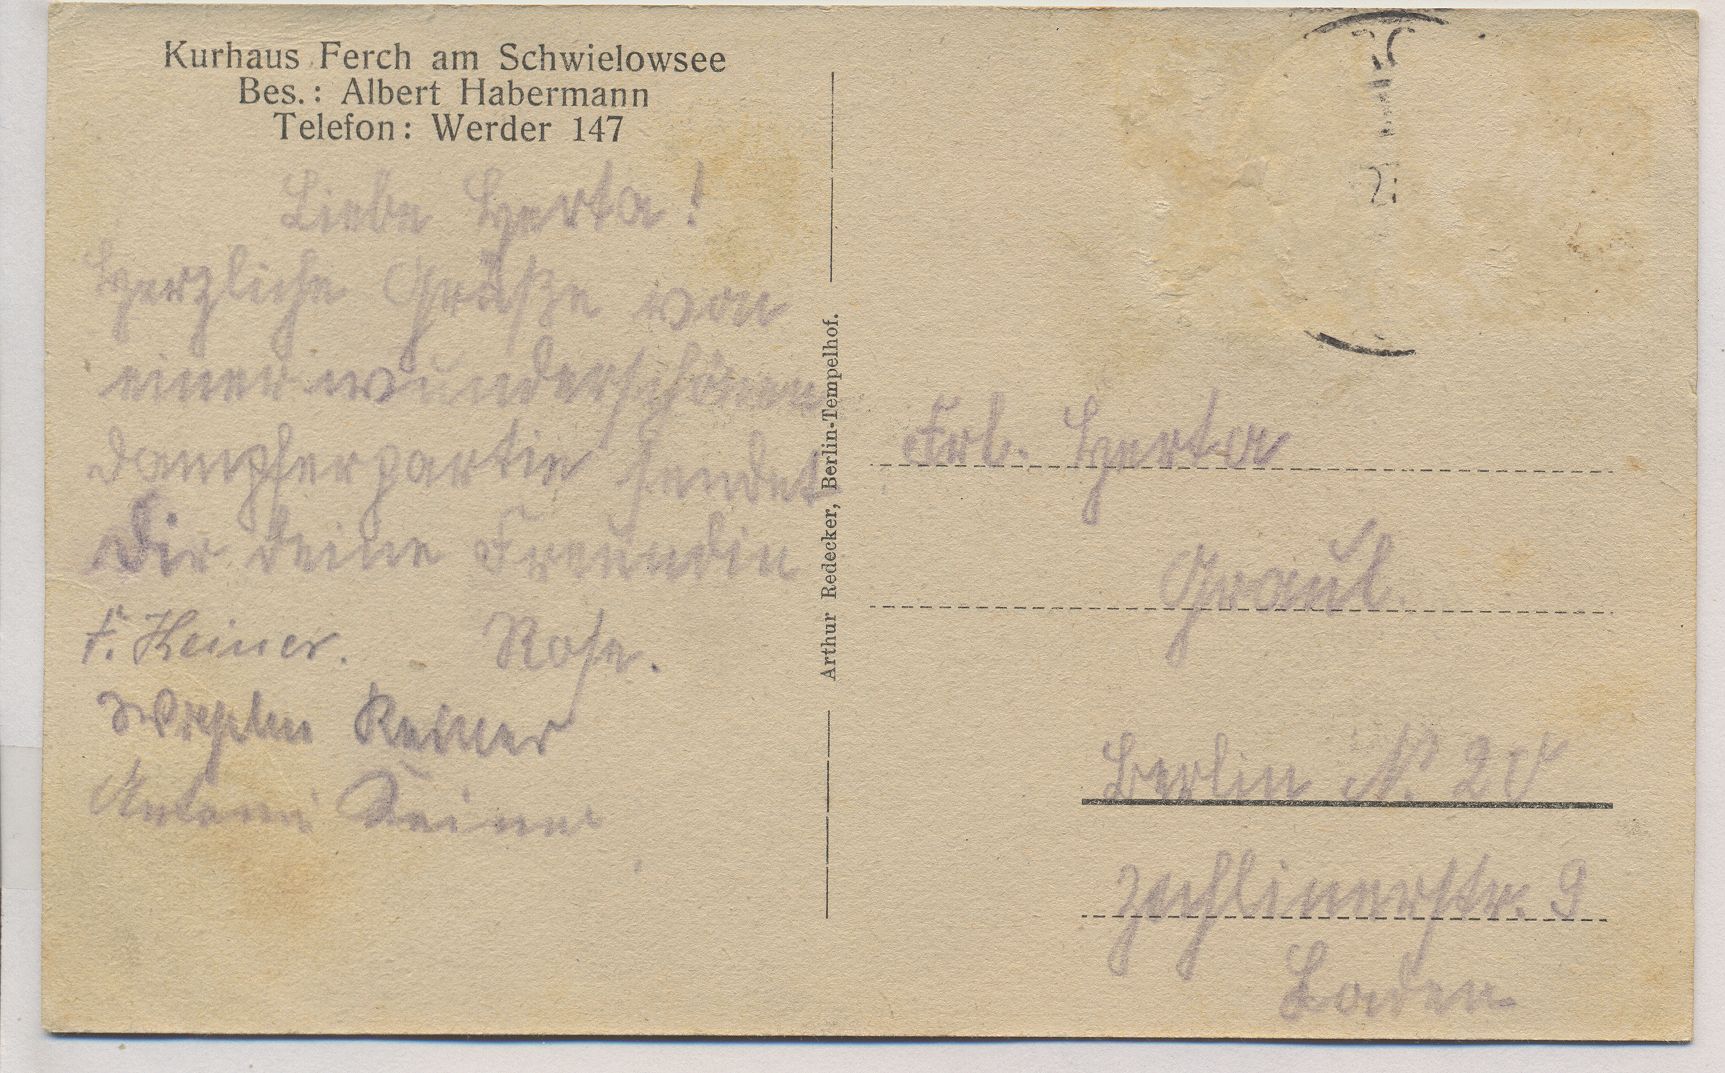 Kurhaus Ferch am Schwielowsee
Bes.: Albert Habermann
Telefon: Werder 147
Liebe Herta!
Herzliche Grüße von
einer wunderschönen
Dampferpartie sendet
Dir deine Freundin
F. Keiner. Rose.
Keiner
Keiner
Arthur Redecker, Berlin-Tempelhof.
Frl. Herta
Graul.
Berlin N. 20
Zechlinerstr. 9
Laden